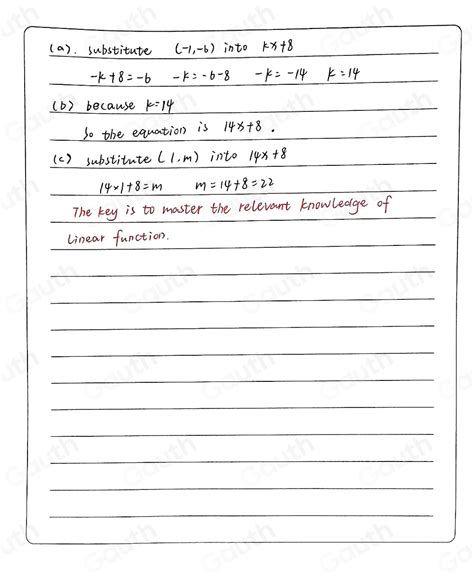 (a). substitute (-1,-6) into kx+8
-k+8=-6 -k=-6-8 -k=-14 k=14
(b) because k=14
So the equation is 14x+8.
(c) substitute (1,m) into 14x+8
14×1+8=m m=14+8=22
The key is to master the relevant knowledge of
linear function.